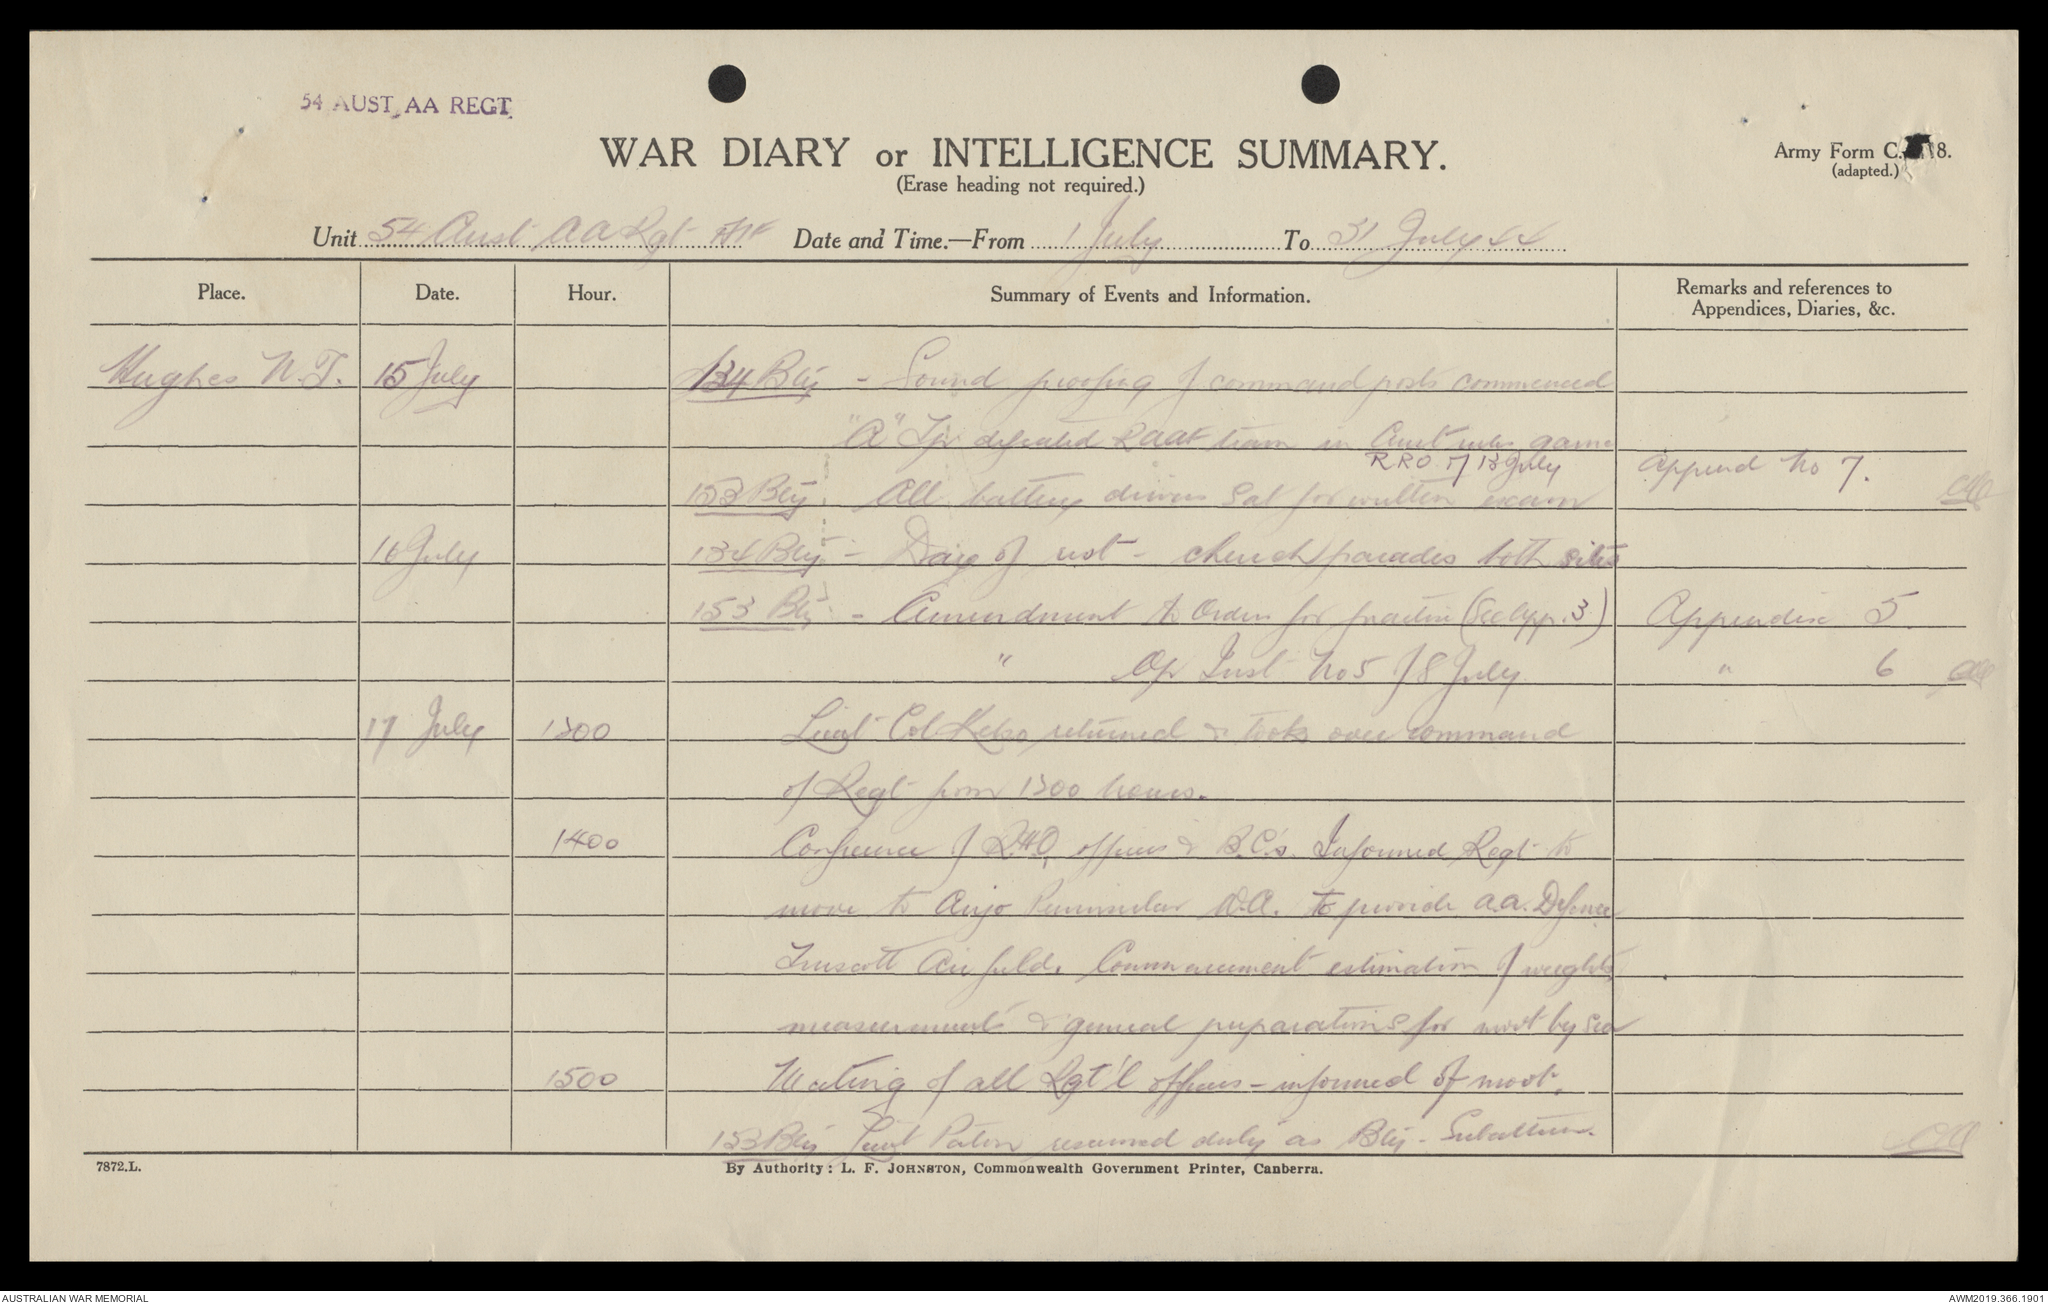 54 AUST. AA REGT.
WAR DIARY or INTELLIGENCE SUMMARY.
(Erase heading not required.)
Army Form C. 18.
(adapted.)
Unit 54 Aust AA Rgt Date and Time.—From 1 July To 31 July 44
Place. Date. Hour. Summary of Events and Information. Remarks and references to
Appendices, Diaries, &c.
Hughes N.T. 15 July 134 Bty - Sound proofing of command posts commenced
"A" Tp defeated RAAF team in Aust rules game
RRO of 13 July Append No 7.
153 Bty: All battery drivers sat for written exam
16 July 134 Bty - Day of rest - church parades both sites
153 Bty - Amendment to Orders for practice (See App. 3) Appendix 5
" Op Inst No 5 of 8 July " 6
17 July 1300 Lieut Col Kelso returned & took over command
of Regt from 1300 hours.
1400 Conference of RHQ officers & B.C's. Informed Regt to
move to Anjo Peninsular W.A. to provide a.a. Defence
Truscott Airfield. Commencement estimation of weights,
measurements & general preparations for move by sea
1500 Meeting of all Rgt'l officers - informed of move.
153 Bty Lieut Paton resumed duty as Bty - Subaltern.
7872.L. By Authority: L. F. JOHNSTON, Commonwealth Government Printer, Canberra.
AUSTRALIAN WAR MEMORIAL AWM2019.366.1901